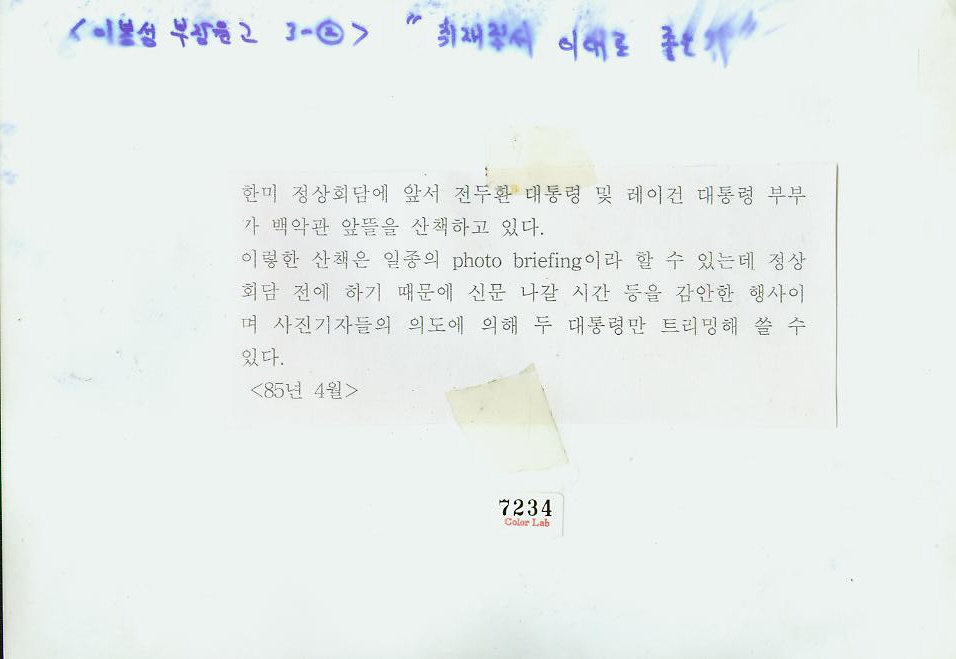 <이봉섭 부장원고 3-②> "취재질서 이대로 좋은가"
한미 정상회담에 앞서 전두환 대통령 및 레이건 대통령 부부
가 백악관 앞뜰을 산책하고 있다.
이렇한 산책은 일종의 photo briefing이라 할 수 있는데 정상
회담 전에 하기 때문에 신문 나갈 시간 등을 감안한 행사이
며 사진기자들의 의도에 의해 두 대통령만 트리밍해 쓸 수
있다.
<85년 4월>
7234
Color Lab